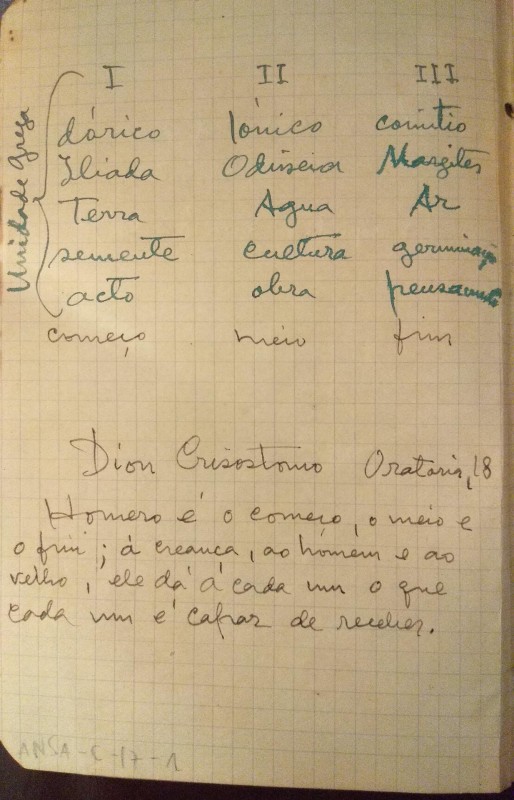 I II III
Unidade Grega
dórico Iónico coríntio
Ilíada Odisseia Margites
Terra Agua Ar
semente cultura germinação
acto obra pensamento
começo meio fim
Dion Crisostomo Oratoria, 18
Homero é o começo, o meio e
o fim; á creança, ao homem e ao
velho, ele dá á cada um o que
cada um é capaz de receber.
ANSA-C-17-1